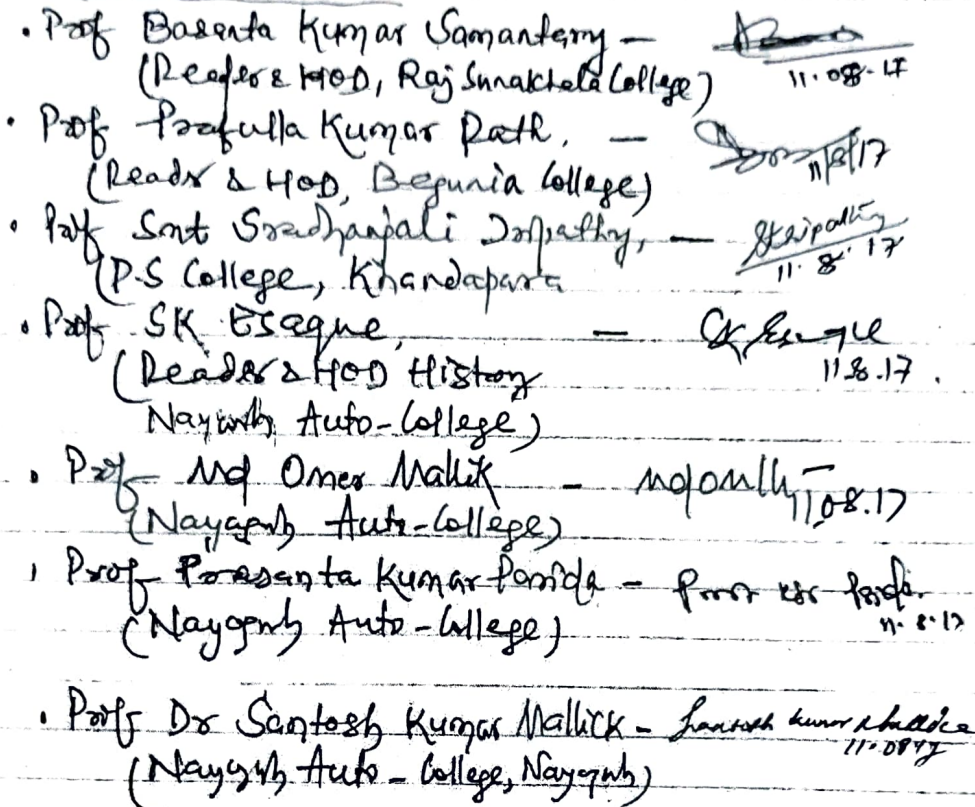 • Prof Basanta Kumar Samantaray –
(Reader & HOD, Raj Sunakhela College) 11.08.17
• Prof Prafulla Kumar Rath, – 11/8/17
(Reader & HOD, Begunia College)
• Prof Smt Sradhanjali Tripathy, – STripathy
(P.S College, Khandapara 11.8.17
• Prof SK Esaque, – SK Esaque
(Reader & HOD History 11.8.17.
Nayagarh Auto-College)
• Prof Md Omer Mallik – 11.08.17
(Nayagarh Auto-College)
Prof Prasanta Kumar Parida –
(Nayagarh Auto-College) 11.8.17
• Prof Dr Santosh Kumar Mallick – Santosh kumar Mallick
(Nayagarh Auto-College, Nayagarh) 11.0817